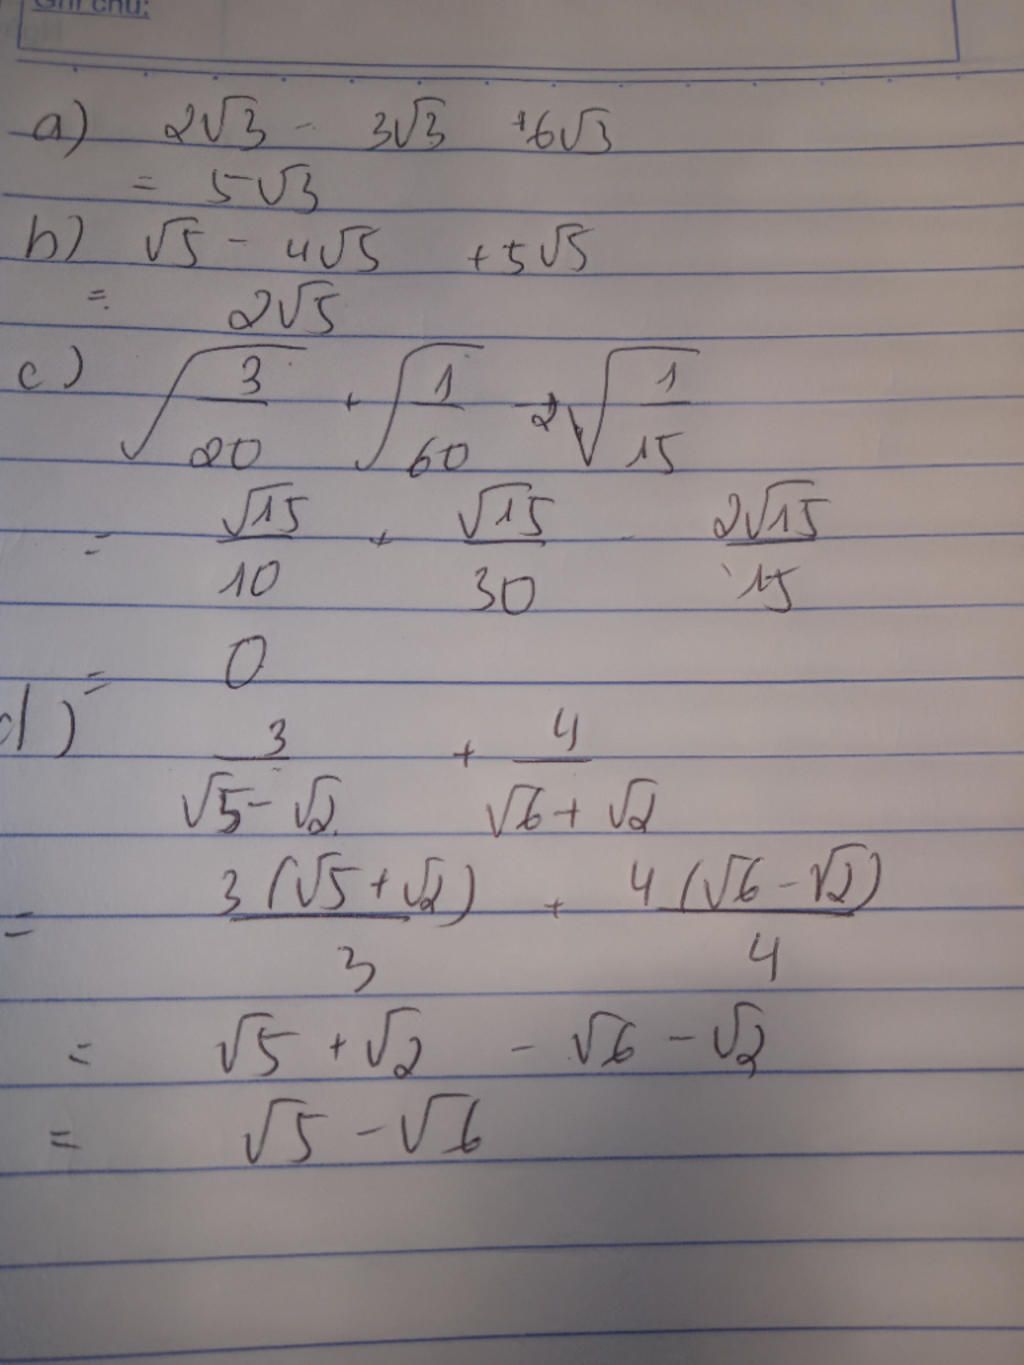 Ghi chú:
a) 2√3 - 3√3 +6√3
= 5√3
b) √5 - 4√5 +5√5
= 2√5
c) √(3/20) + √(1/60) -2√(1/15)
= √15/10 + √15/30 - 2√15/15
= 0
d) 3/(√5-√2) + 4/(√6+√2)
= 3(√5+√2)/3 + 4(√6-√2)/4
= √5 +√2 - √6 - √2
= √5 - √6